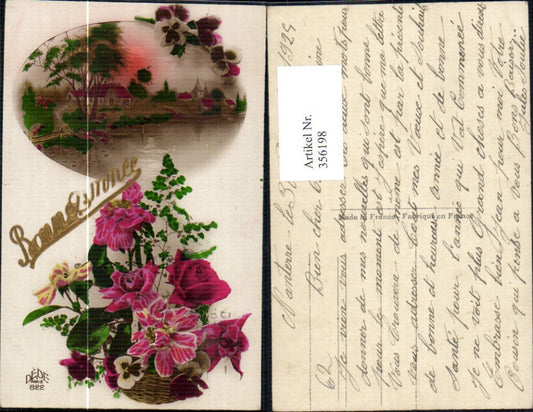 Bonne Année
DEDE
PARIS
822
Artikel Nr.
356198
Made in France, Fabriqué en France
Nanterre le 3 1925
Bien cher
62 Je vien vous adresser deux mots pour
donner de mes nouvelles qui sont bonne
pour le moment et j'espère que ma lettre
Vous trouvera de même et par la présente
vous adresser tout mes Vœux et Souhait
de bonne et heureuse année et de bonne
Santé pour l'année qui Vat Commencée
Je ne voit plus Grand choses a vous dire
Embrasse bien Jean pour moi Votre
Cousin qui pense a vous Bons Baisers
Jules